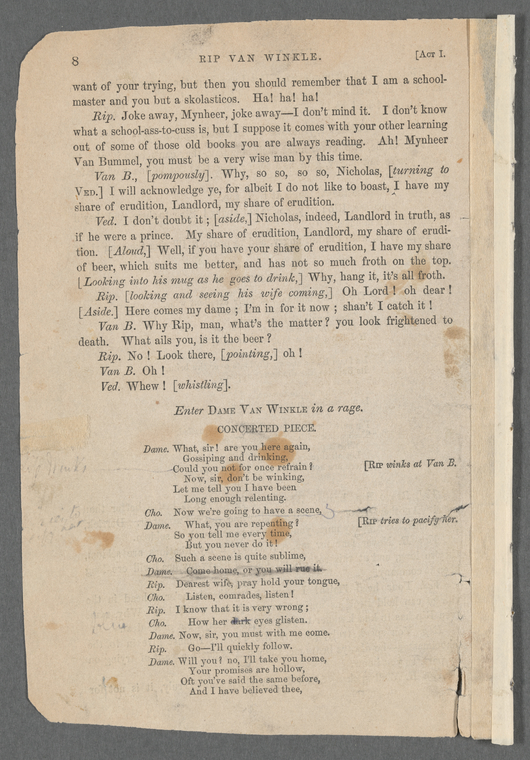 8 RIP VAN WINKLE. [Act I.
want of your trying, but then you should remember that I am a school-
master and you but a skolasticos. Ha! ha! ha!
Rip. Joke away, Mynheer, joke away—I don't mind it. I don't know
what a school-ass-to-cuss is, but I suppose it comes with your other learning
out of some of those old books you are always reading. Ah! Mynheer
Van Bummel, you must be a very wise man by this time.
Van B., [pompously]. Why, so, so, so, so, Nicholas, [turning to
Ved.] I will acknowledge ye, for albeit I do not like to boast, I have my
share of erudition, Landlord, my share of erudition.
Ved. I don't doubt it; [aside,] Nicholas, indeed, Landlord in truth, as
if he were a prince. My share of erudition, Landlord, my share of erudi-
tion. [Aloud,] Well, if you have your share of erudition, I have my share
of beer, which suits me better, and has not so much froth on the top.
[Looking into his mug as he goes to drink,] Why, hang it, it's all froth.
Rip. [looking and seeing his wife coming,] Oh Lord! oh dear!
[Aside.] Here comes my dame; I'm in for it now; shan't I catch it!
Van B. Why Rip, man, what's the matter? you look frightened to
death. What ails you, is it the beer?
Rip. No! Look there, [pointing,] oh!
Van B. Oh!
Ved. Whew! [whistling].
Enter Dame Van Winkle in a rage.
CONCERTED PIECE.
Dame. What, sir! are you here again,
Gossiping and drinking,
Could you not for once refrain? [Rip winks at Van B.
Now, sir, don't be winking,
Let me tell you I have been
Long enough relenting.
Cho. Now we're going to have a scene,
Dame. What, you are repenting? [Rip tries to pacify her.
So you tell me every time,
But you never do it!
Cho. Such a scene is quite sublime,
Dame. Come home, or you will rue it.
Rip. Dearest wife, pray hold your tongue,
Cho. Listen, comrades, listen!
Rip. I know that it is very wrong;
Cho. How her dark eyes glisten.
Dame. Now, sir, you must with me come.
Rip. Go—I'll quickly follow.
Dame. Will you? no, I'll take you home,
Your promises are hollow,
Oft you've said the same before,
And I have believed thee,